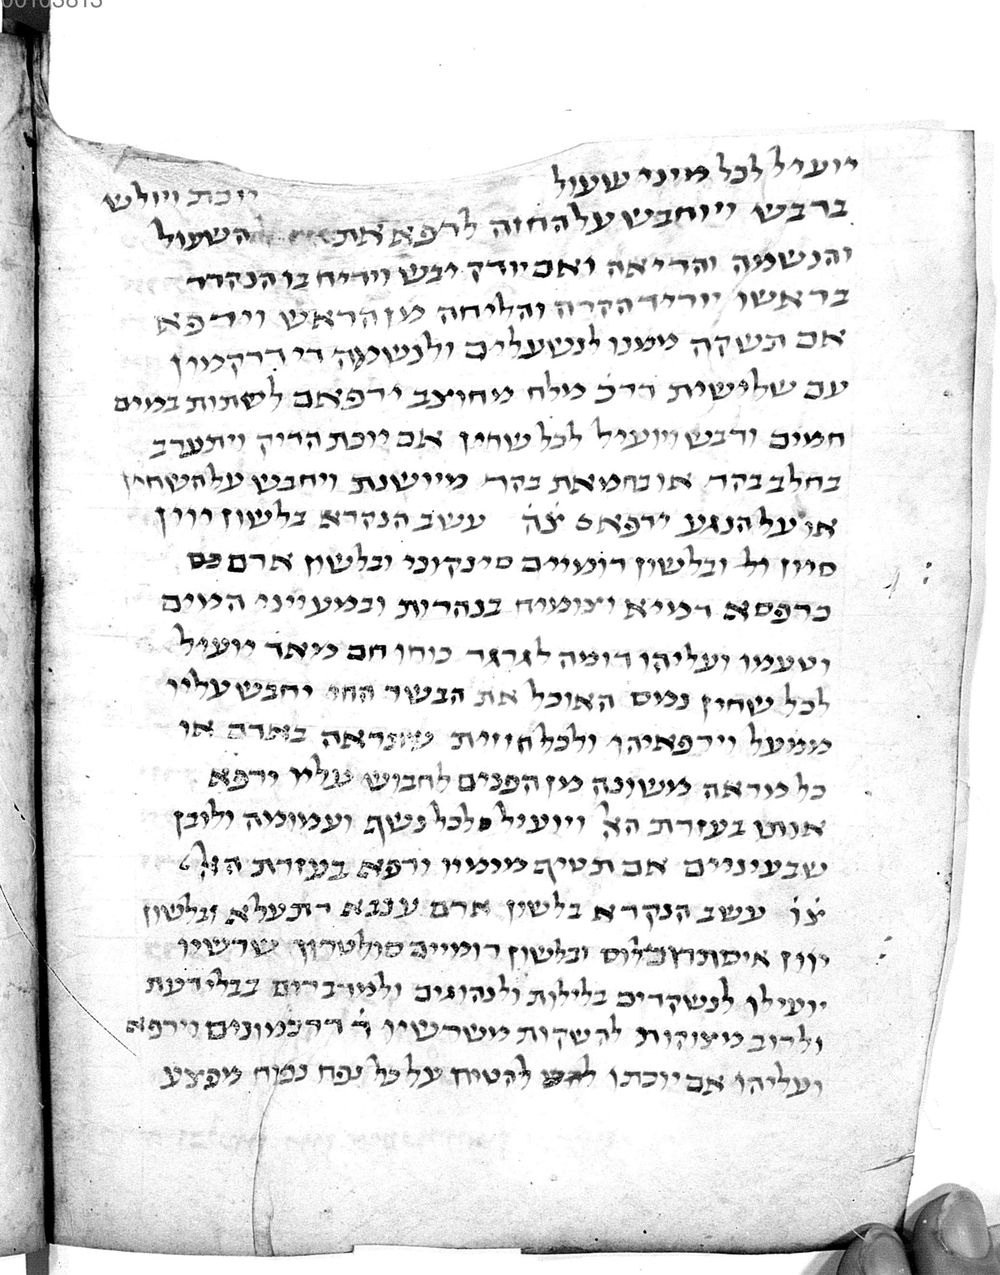 00103813
יועיל לכל מיני שעול יוכת ויולש
ברבש ויוחבש על החזה לרפא את השעול
והנשמה והריאה ואם יודק יבש ויריח בו הנקרר
בראשו יוריד הקרה והליחה מן הראש וירפא
אם תשקה ממנו לנשעלים ולנשמה די דרקמון
עם שלישית דרכ מלח מחוצב ירפאם לשתות במים
חמים ודבש ויועיל לכל שחין אם יוכת הדיק ויתערב
בחלב בקר או בחמאת בקר מיושנת ויחבש על השחין
או על הנגע ירפא צה עשב הנקרא בלשון יוון
סיון ול ובלשון רומיים סינקוני ובלשון ארם
כרפסא דמיא וצומיח בנהרות ובמעייני המים
וטעמו ועליהו דומה לגרגר כוחו חם מאד יועיל
לכל שחין נמס האוכל את הבשר החי יחבש עליו
ממעל וירפאיהו ולכל חזזית שנראה באדם או
כל מראה משונה מן הפנים לחבוש עליו ירפא
אותו בעזרת הא ויועיל לכל נשף ועמומה ולובן
שבעיניים אם תטיף מימיו ירפא בעזרת
צו עשב הנקרא בלשון ארם ענבא דתעלא ובלשון
יוון ובלשון רומיים סולטרון שרשיו
יועילו לנשקדים בלילות ולנהוגים ולמדברים בבלי דעת
ולרוב מצוקות להשקות משרשיו ד דרכמונים וירפא
ועליהו אם יוכתו להטוח על כל נפח נפוח מפצע